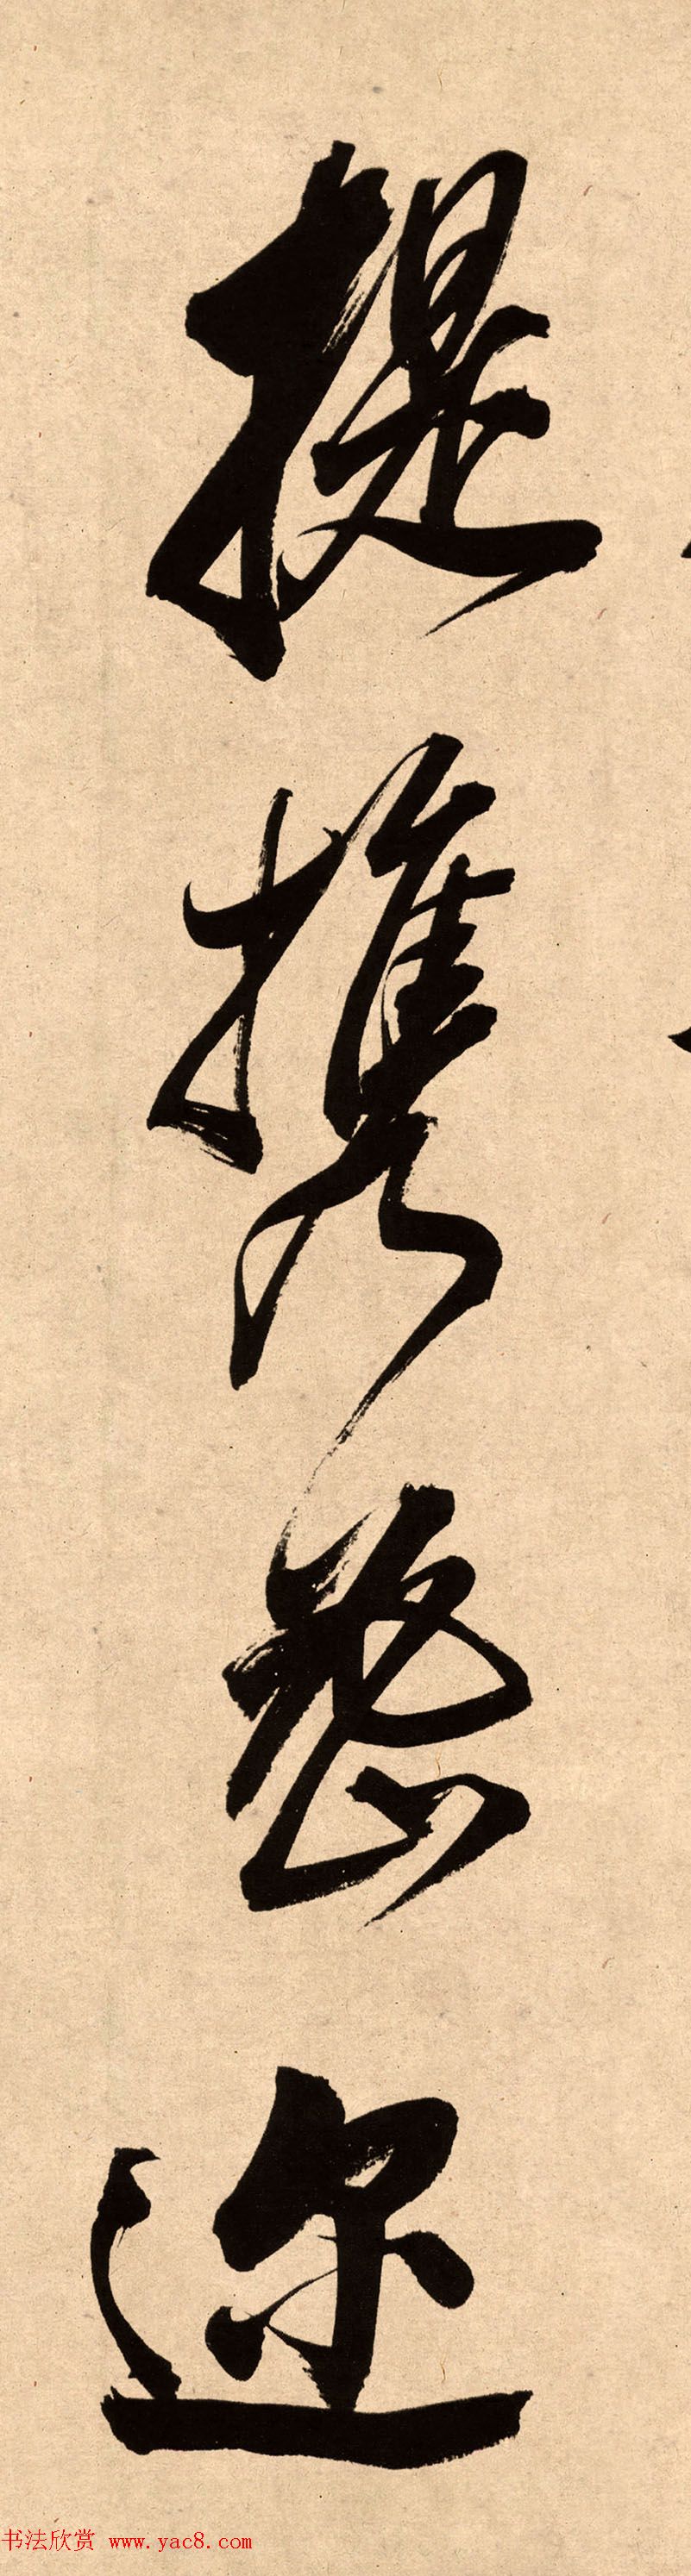 提携迩
书法欣赏 www.yac8.com